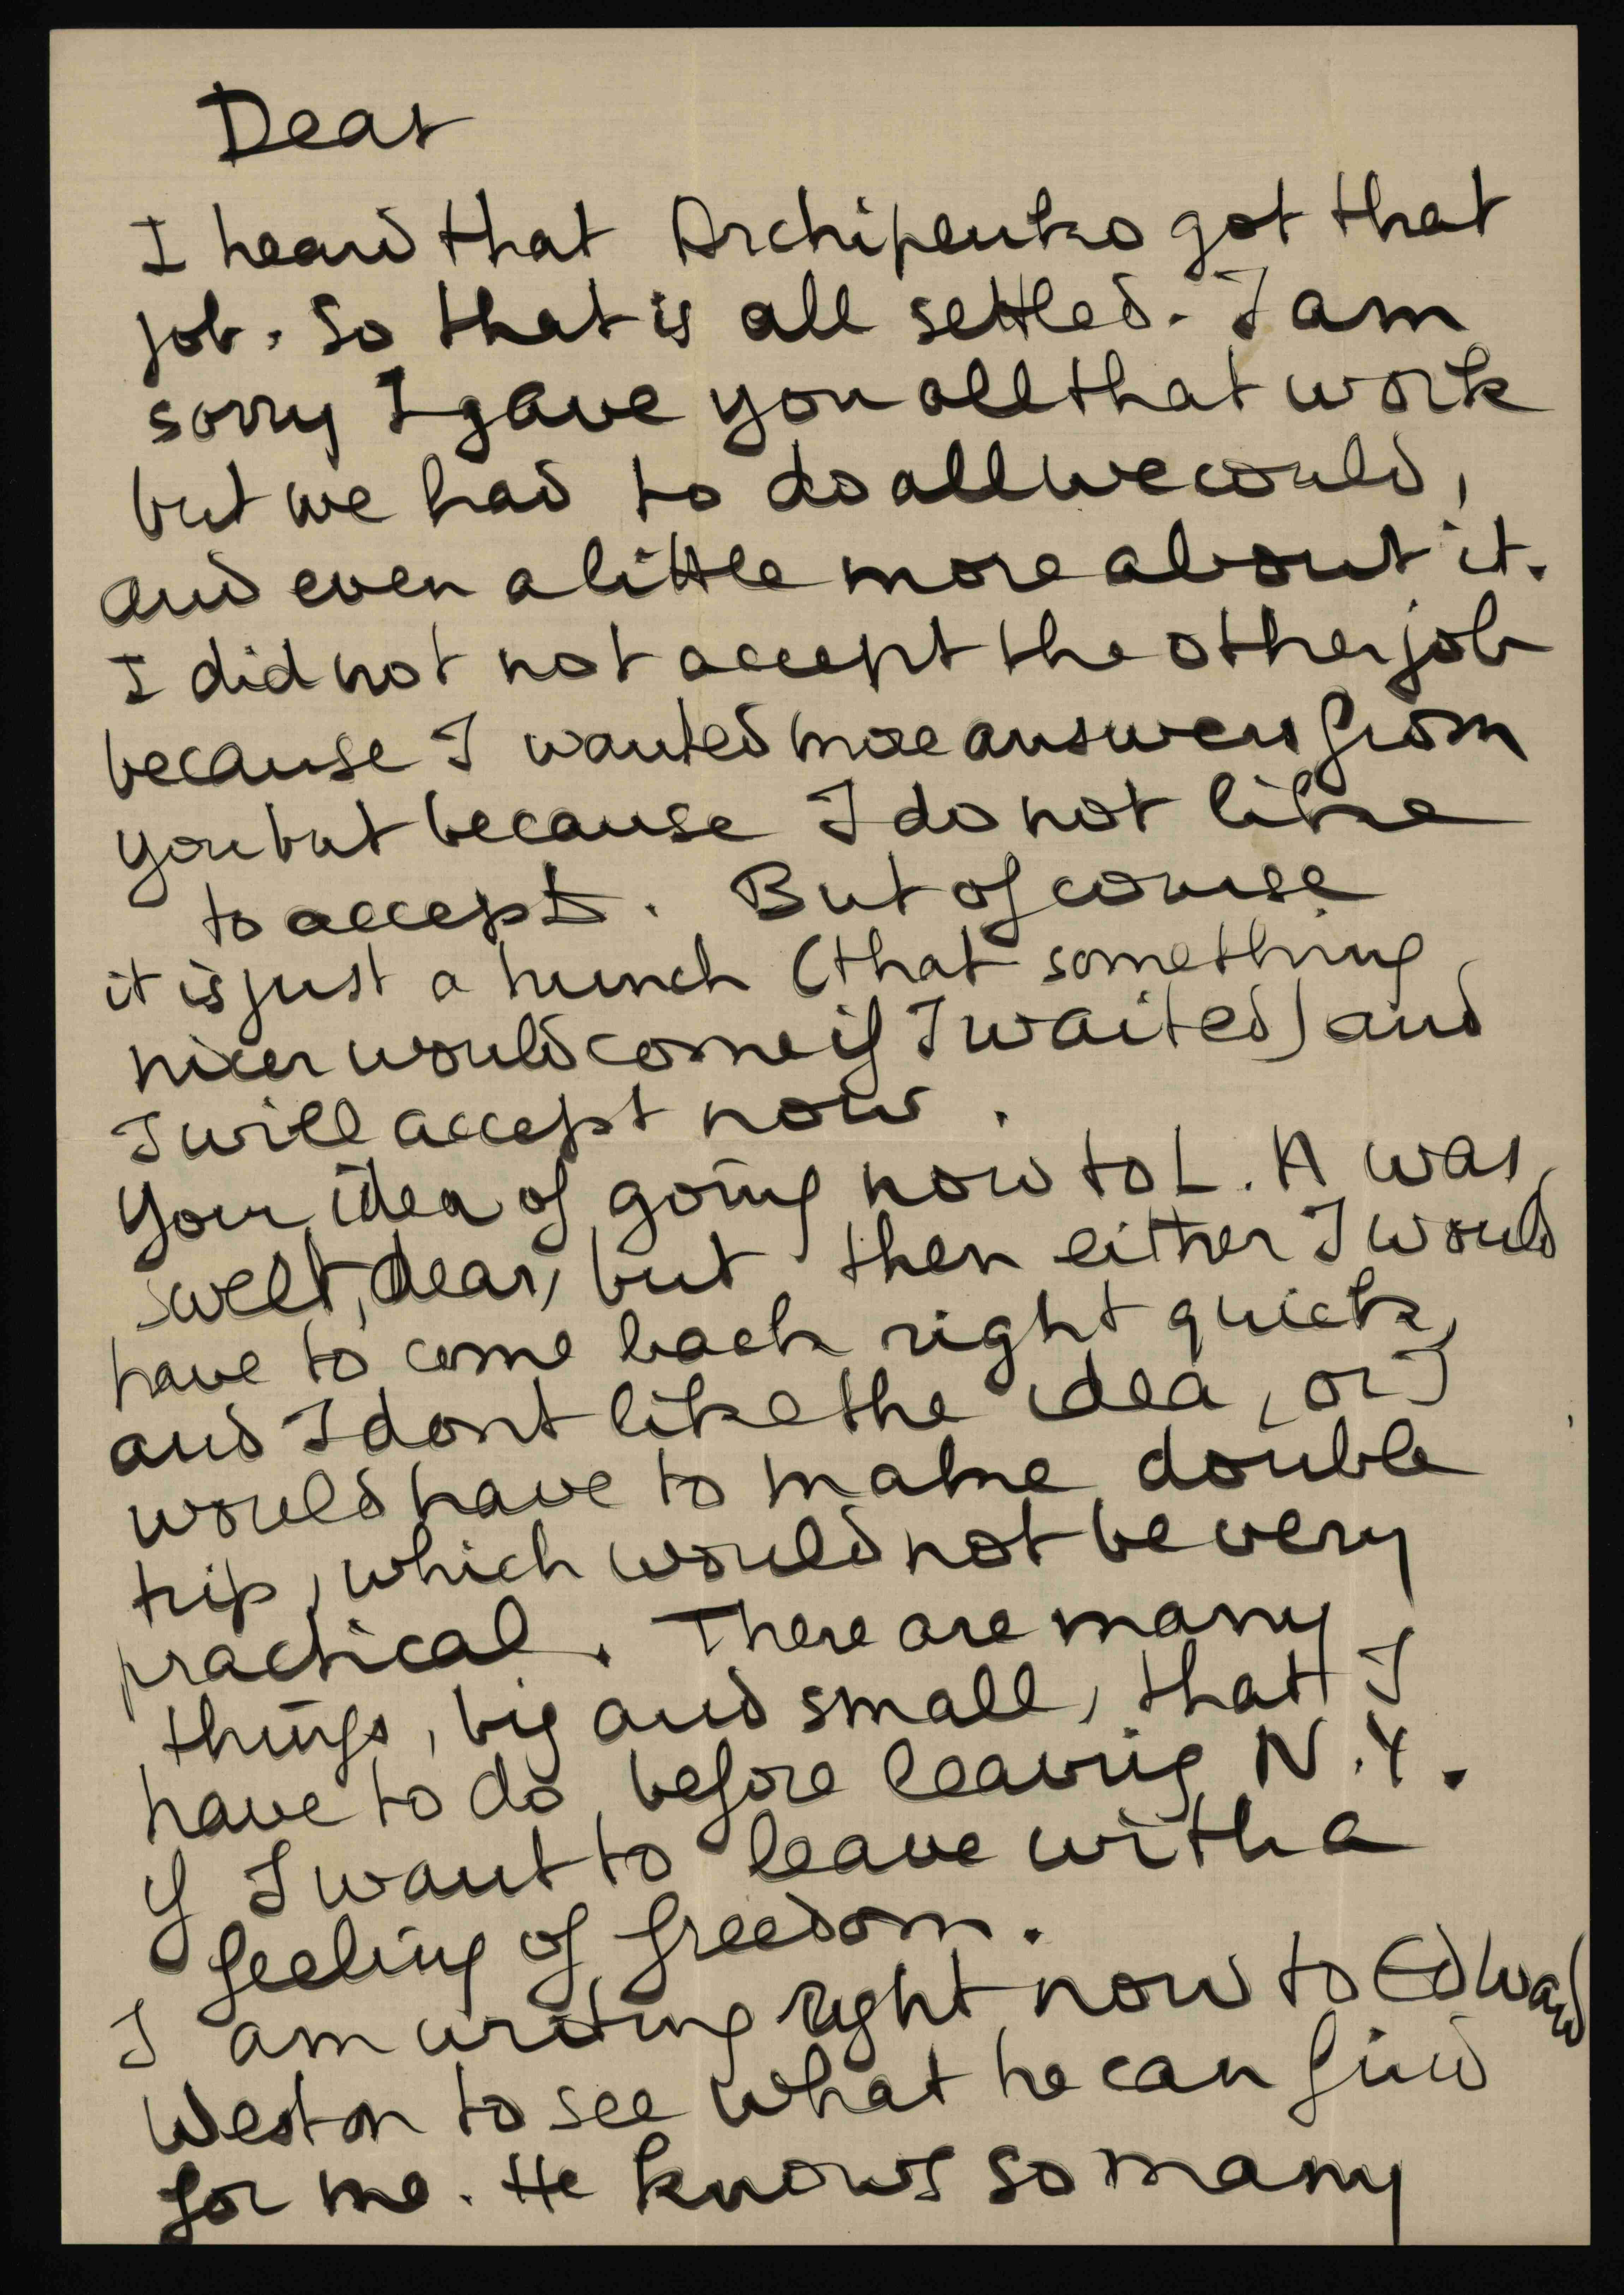 Dear
I heard that Archipenko got that
job. So that is all settled. I am
sorry I gave you all that work
but we had to do all we could,
and even a little more about it.
I did not not accept the other job
because I wanted more answers from
you but because I do not like
to accept. But of course
it is just a hunch (that something
nicer would come if I waited) and
I will accept now.
Your idea of going now to L. A was
swell, dear, but then either I would
have to come back right quick,
and I dont like the idea, or I
would have to make double
trip, which would not be very
practical. There are many
things, big and small, that I
have to do before leaving N.Y.
if I want to leave with a
feeling of freedom.
I am writing right now to Edward
Weston to see what he can find
for me. He knows so many